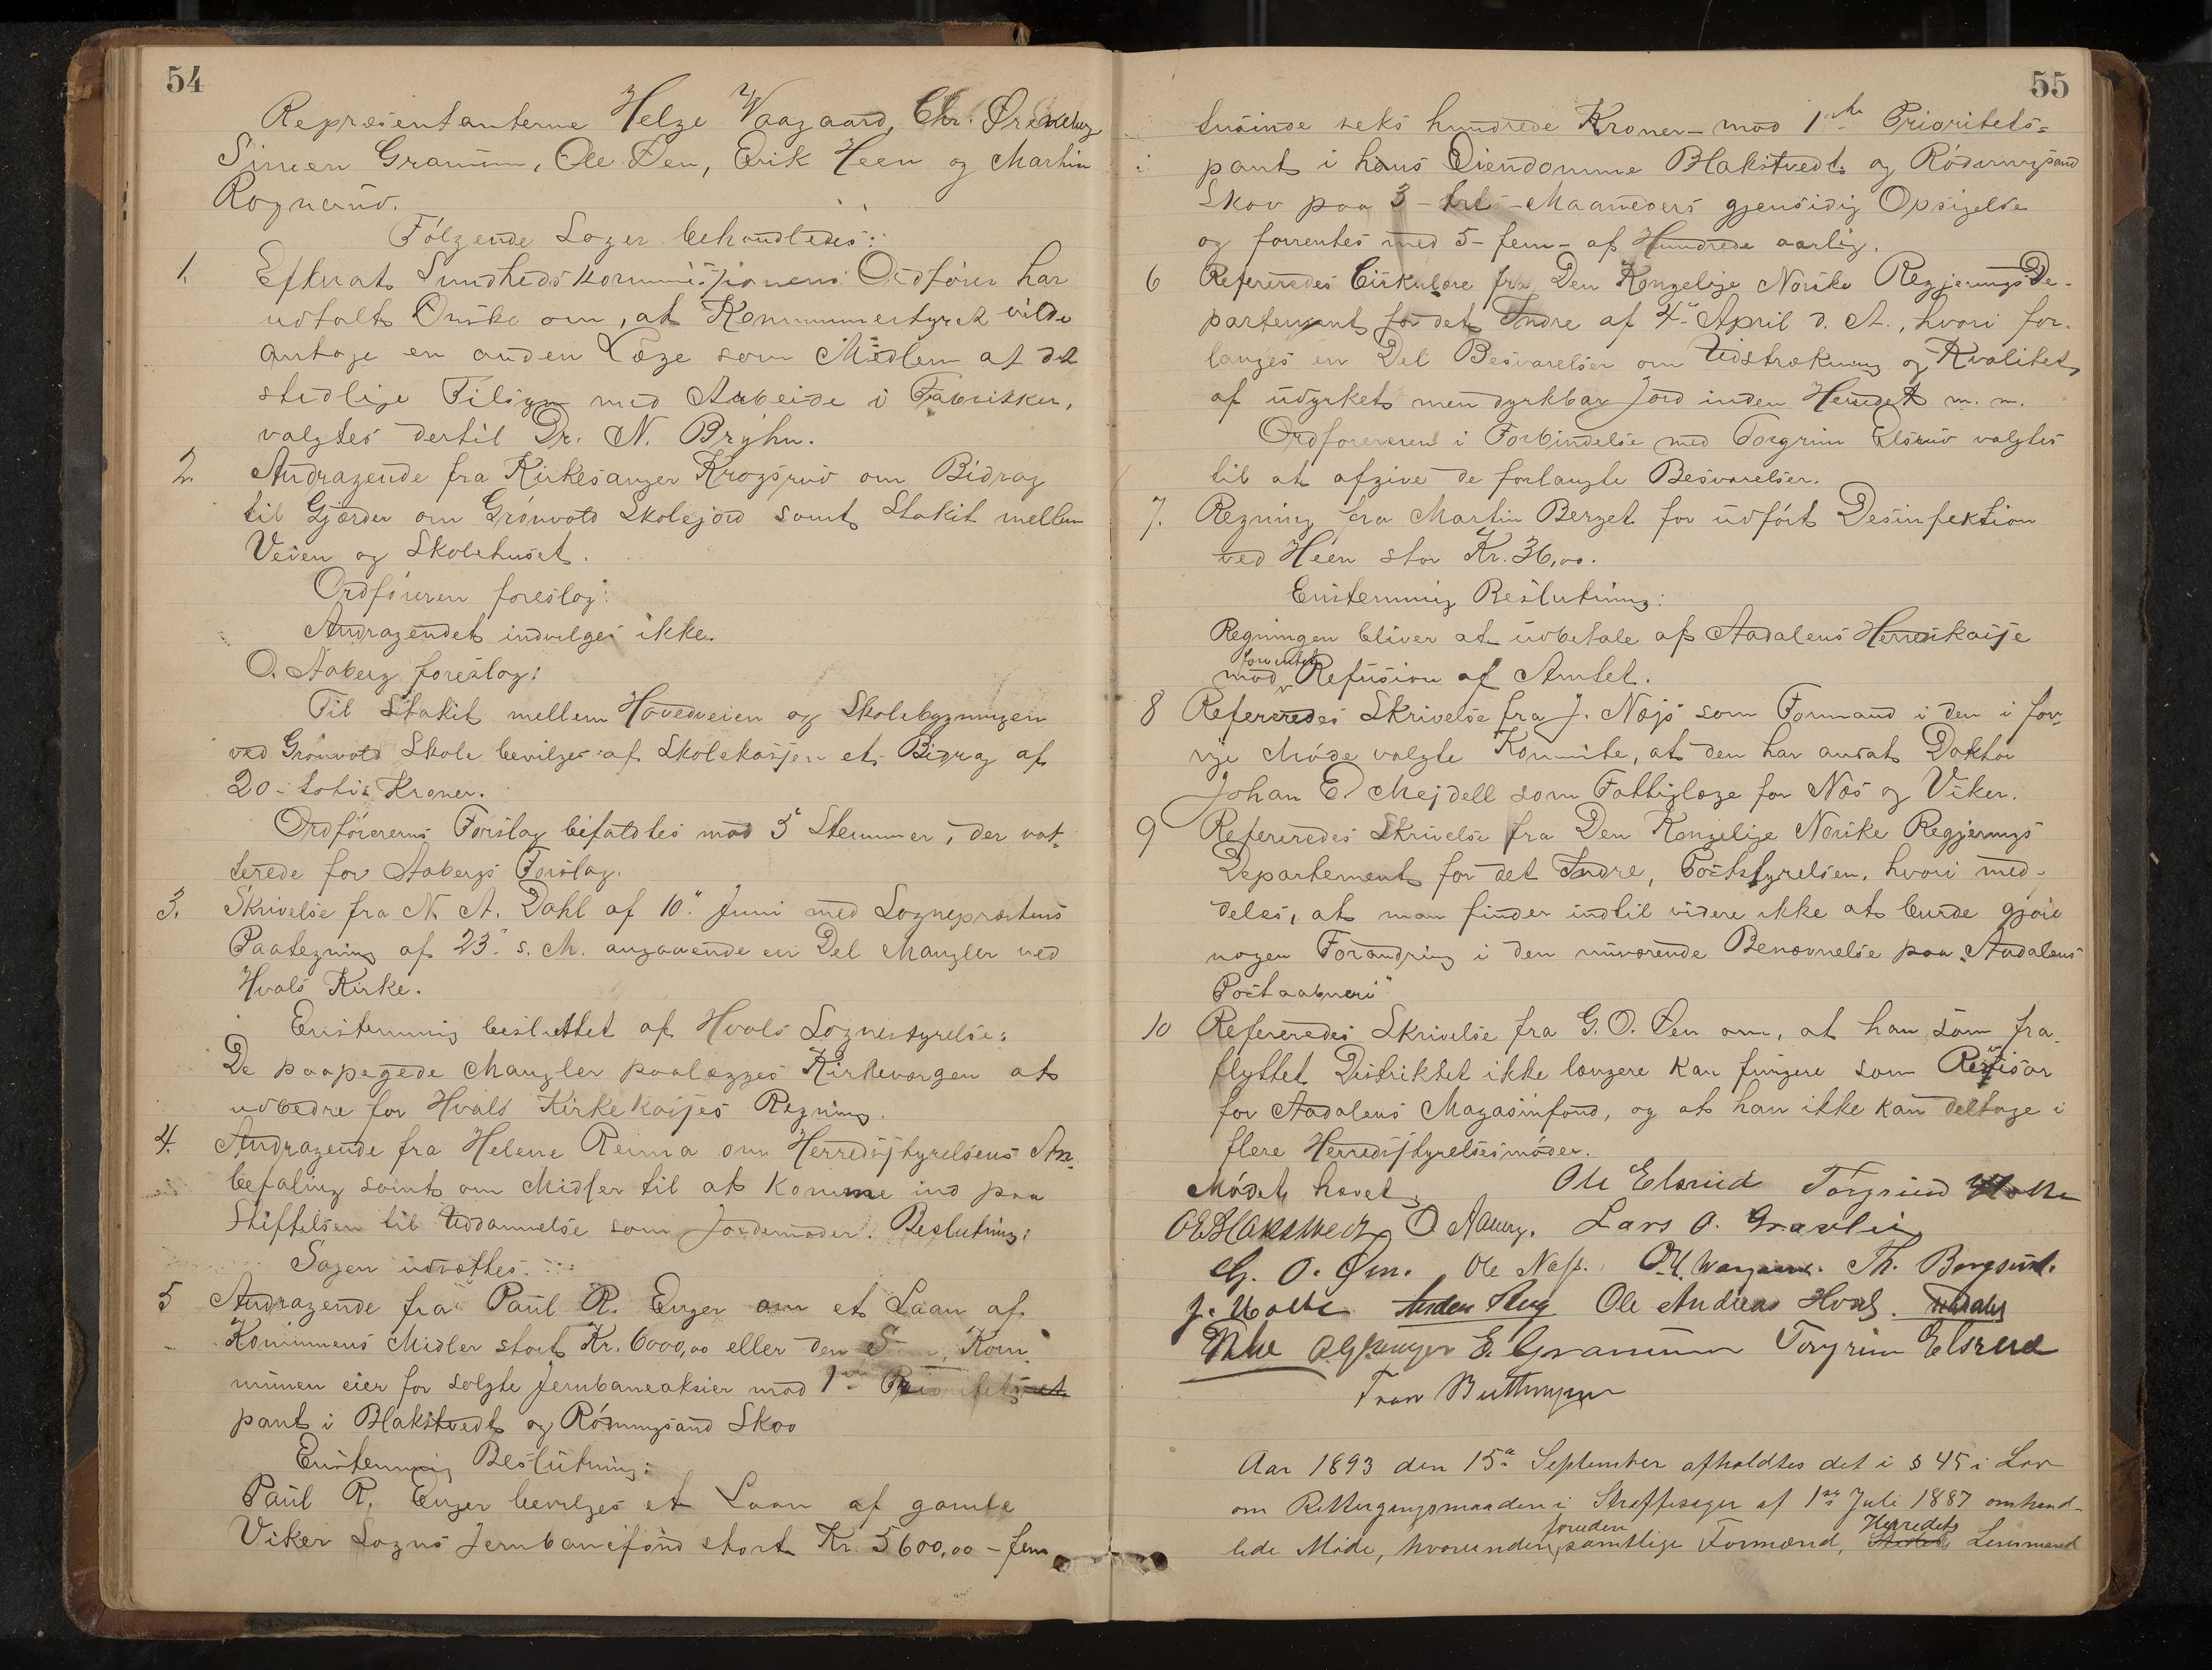 54
Repræsentanterne Helge Waagaard, Chr.
Simen Granum, Ole Øen, Erik Heen og Martin
Rognerud.
Følgende Sager behandledes:
1. Efterat Sundhedskommissionens Ordfører har
udtalt Ønske om, at Kommunestyret vilde
antage en anden Læge som Medlem af det
stedlige Tilsyn med Arbeide i Fabrikker,
valgtes dertil Dr. N. Bryhn.
2. Andragende fra Kirkesanger Krogsrud om Bidrag
til Gjærder om Grønvold Skolejord samt Stakit mellem
Veien og Skolehuset.
Ordføreren foreslog:
Andragendet indvilges ikke.
O. Aaberg foreslog:
Til Stakit mellem Hovedveien og Skolebygningen
ved Grønvold Skole bevilges af Skolekassen et Bidrag af
20 - totis Kroner.
Ordførerens Forslag bifaldtes mod 5 Stemmer, der vot-
terede for Aabergs Forslag.
3. Skrivelse fra N. A. Dahl af 10" Juni med Sogneprestens
Paategning af 23" s. M. angaaende en Del Mangler ved
Hvals Kirke.
Enstemmig besluttet af Hvals Sognestyrelse:
De paapegede Mangler paalægges Kirkeværgen at
udbedre for Hvals Kirkekasses Regning.
4. Andragende fra Helene Rema om Herredsstyrelsens An-
befaling samt om Midler til at komme ind paa
Stiftelsen til Uddannelse som Jordemoder. Beslutning:
Sagen udsættes.
5 Andragende fra Paul R. Enger om et Laan af
Kommunens Midler stort Kr. 6000,00 eller den Kom
munen eier for solgte Jernbaneaksier mod 1ste Prioritets
pant i Blakstvedt og Rønningsand Skov
Enstemmig Beslutning:
Paul R. Enger bevilges et Laan af gamle
Viker Sogns Jernbanefond stort Kr. 5600,00 - fem
55
tusinde seks hundrede Kroner - mod 1ste Prioritets=
pant i hans Eiendomme Blakstvedt og Rødningsand
Skov paa 3 - tre - Maaneders gjensidig Opsigelse
og forrentes med 5 - fem - af Hundrede aarlig.
6 Refereredes Cirkulære fra Den Kongelige Norske Regjerings De-
partement for det Indre af 4" April d. A., hvori for-
langes en Del Besvarelser om Udstrækning og Kvalitet
af udyrket men dyrkbar Jord inden Herredet m. m.
Ordføreren i Forbindelse med Torgrim Elsrud valgtes
til at afgive de forlangte Besvarelser.
7. Regning fra Martin Berget for udført Desinfektion
ved Heen stor Kr. 36,00.
Enstemmig Beslutning:
Regningen bliver at udbetale af Aadalens Herredskasse
mod forventet Refusion af Amtet.
8 Refereredes Skrivelse fra J. Næss som Formand i den i for-
rige Møde valgte Komite, at den har antat Doktor
Johan E. Mejdell som Fattiglæge for Næs og Viker.
9 Refereredes Skrivelse fra Den Kongelige Norske Regjerings
Departement for det Indre, Poststyrelsen, hvori med-
deles, at man finder indtil videre ikke at burde gjøre
nogen Forandring i den nuværende Benævnelse paa "Aadalens
Postaabneri"
10 Refereredes Skrivelse fra G. O. Øen om, at han som fra-
flyttet Distriktet ikke længere kan fungere som Revisor
for Aadalens Magasinfond, og at han ikke kan deltage i
flere Herredsstyrelsesmøder.
Mødet hævet
Ole Elsrud Torgrim Holte
OEBlakstvedt O. Aaberg. Lars O. Gravlie
G. O. Øen. Ole Næss. Th. Borgerud.
J. Holte Anders Haug Ole Andreas Hval.
E. Granum Torgrim Elsrud
Aar 1893 den 15de September afholdtes det i § 45 i Lov
om Rettergangsmaaden i Straffesager af 1ste Juli 1887 omhand-
lede Møde, hvorunder foruden samtlige Formænd, Herredets Lensmand